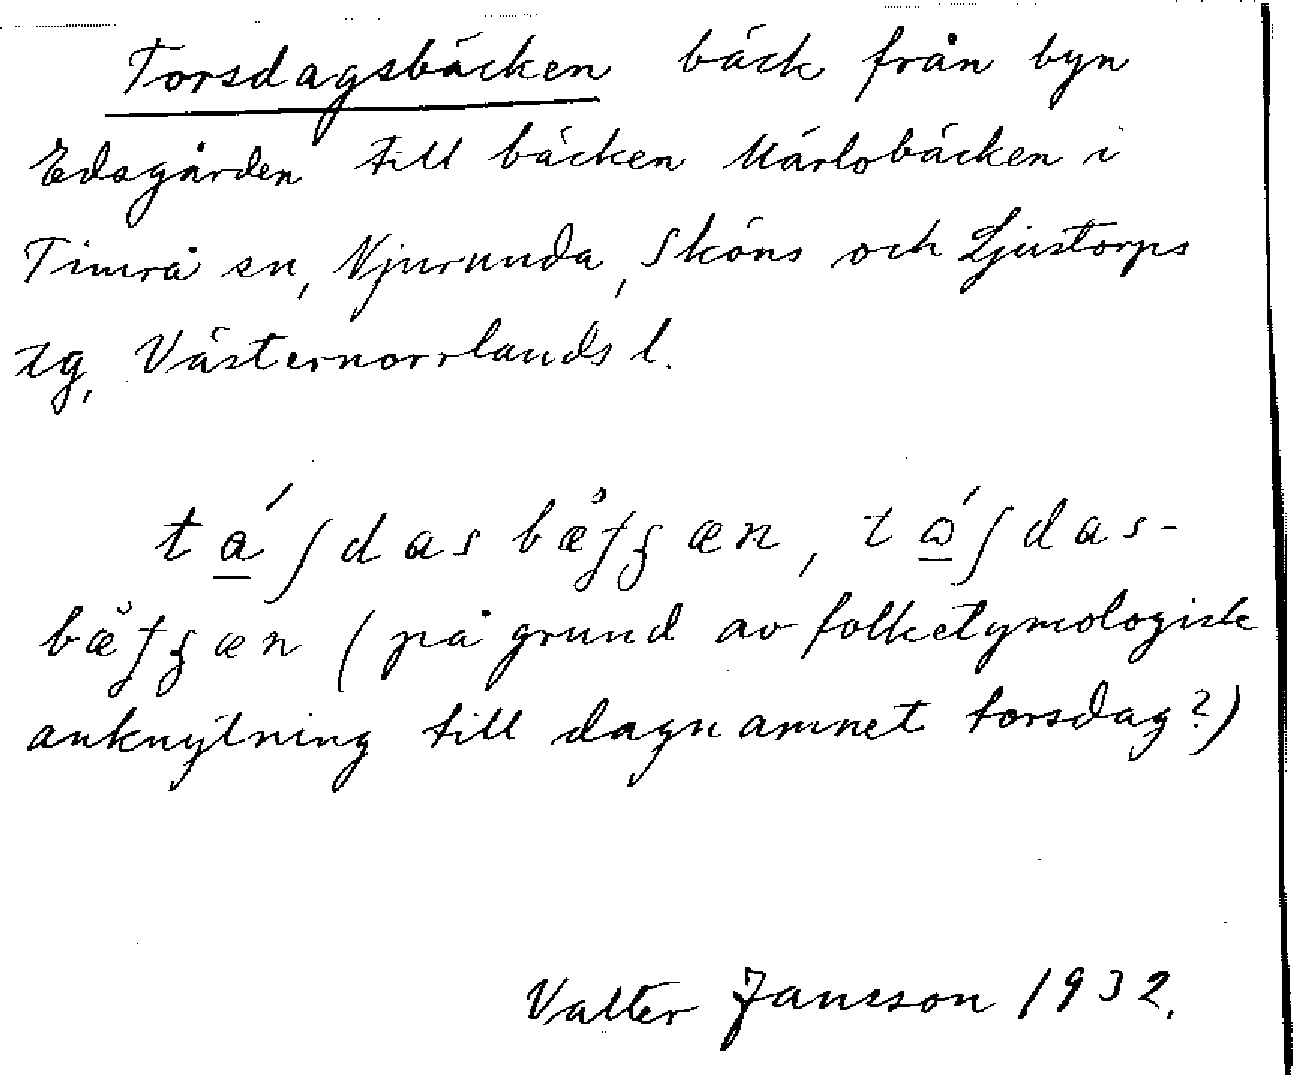 Torsdagsbäcken bäck från byn
Edsgården till bäcken Märlobäcken i
Timrå sn, Njurunda, Sköns och Ljustorps
tg, Västernorrlands l.
bäck
(på grund av folketymologisk
anknytning till dagnamnet torsdag?)
Valter Jansson 1932.